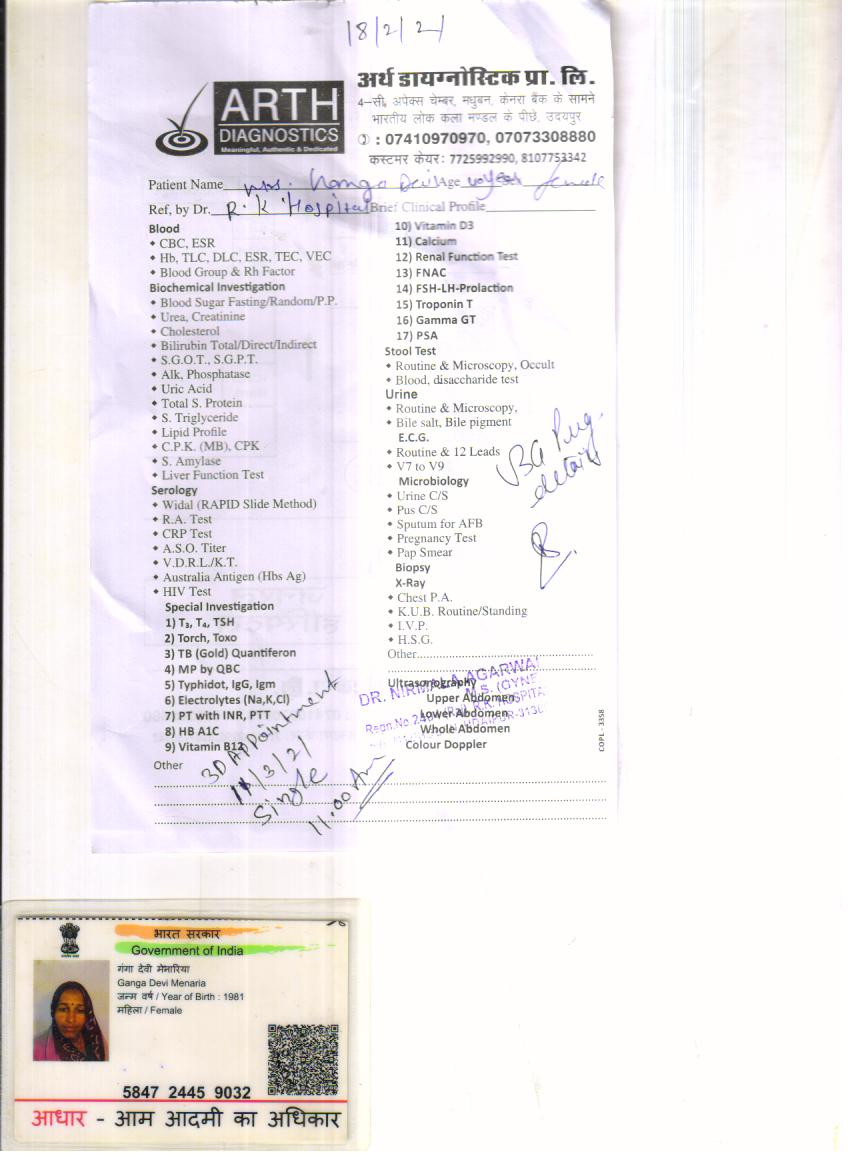 18/2/21
ARTH
DIAGNOSTICS
Meaningful, Authentic & Dedicated
अर्थ डायग्नोस्टिक प्रा. लि.
4–सी, अपेक्स चेम्बर, मधुबन, केनरा बैंक के सामने
भारतीय लोक कला मण्डल के पीछे, उदयपुर
: 07410970970, 07073308880
कस्टमर केयर: 7725992990, 8107753342
Patient Name Mrs. Ganga Devi Age 40 year female
Ref, by Dr. R.K Hospital Brief Clinical Profile
Blood
• CBC, ESR
• Hb, TLC, DLC, ESR, TEC, VEC
• Blood Group & Rh Factor
Biochemical Investigation
• Blood Sugar Fasting/Random/P.P.
• Urea, Creatinine
• Cholesterol
• Bilirubin Total/Direct/Indirect
• S.G.O.T., S.G.P.T.
• Alk, Phosphatase
• Uric Acid
• Total S. Protein
• S. Triglyceride
• Lipid Profile
• C.P.K. (MB), CPK
• S. Amylase
• Liver Function Test
Serology
• Widal (RAPID Slide Method)
• R.A. Test
• CRP Test
• A.S.O. Titer
• V.D.R.L./K.T.
• Australia Antigen (Hbs Ag)
• HIV Test
Special Investigation
1) T3, T4, TSH
2) Torch, Toxo
3) TB (Gold) Quantiferon
4) MP by QBC
5) Typhidot, IgG, Igm
6) Electrolytes (Na,K,Cl)
7) PT with INR, PTT
8) HB A1C
9) Vitamin B12
Other
10) Vitamin D3
11) Calcium
12) Renal Function Test
13) FNAC
14) FSH-LH-Prolaction
15) Troponin T
16) Gamma GT
17) PSA
Stool Test
• Routine & Microscopy, Occult
• Blood, disaccharide test
Urine
• Routine & Microscopy,
• Bile salt, Bile pigment
E.C.G.
• Routine & 12 Leads
• V7 to V9
Microbiology
• Urine C/S
• Pus C/S
• Sputum for AFB
• Pregnancy Test
• Pap Smear
Biopsy
X-Ray
• Chest P.A.
• K.U.B. Routine/Standing
• I.V.P.
• H.S.G.
Other
Ultrasonography
Upper Abdomen
Lower Abdomen
Whole Abdomen
Colour Doppler
DR. NIRMALA AGARWAL
M.S. (GYNE
Regn.No.
R.K. HOSPITA
3D Appointment
11/3/21
Single
11.00 Am
COPL - 3358
भारत सरकार
Government of India
गंगा देवी मेनारिया
Ganga Devi Menaria
जन्म वर्ष / Year of Birth : 1981
महिला / Female
5847 2445 9032
आधार - आम आदमी का अधिकार